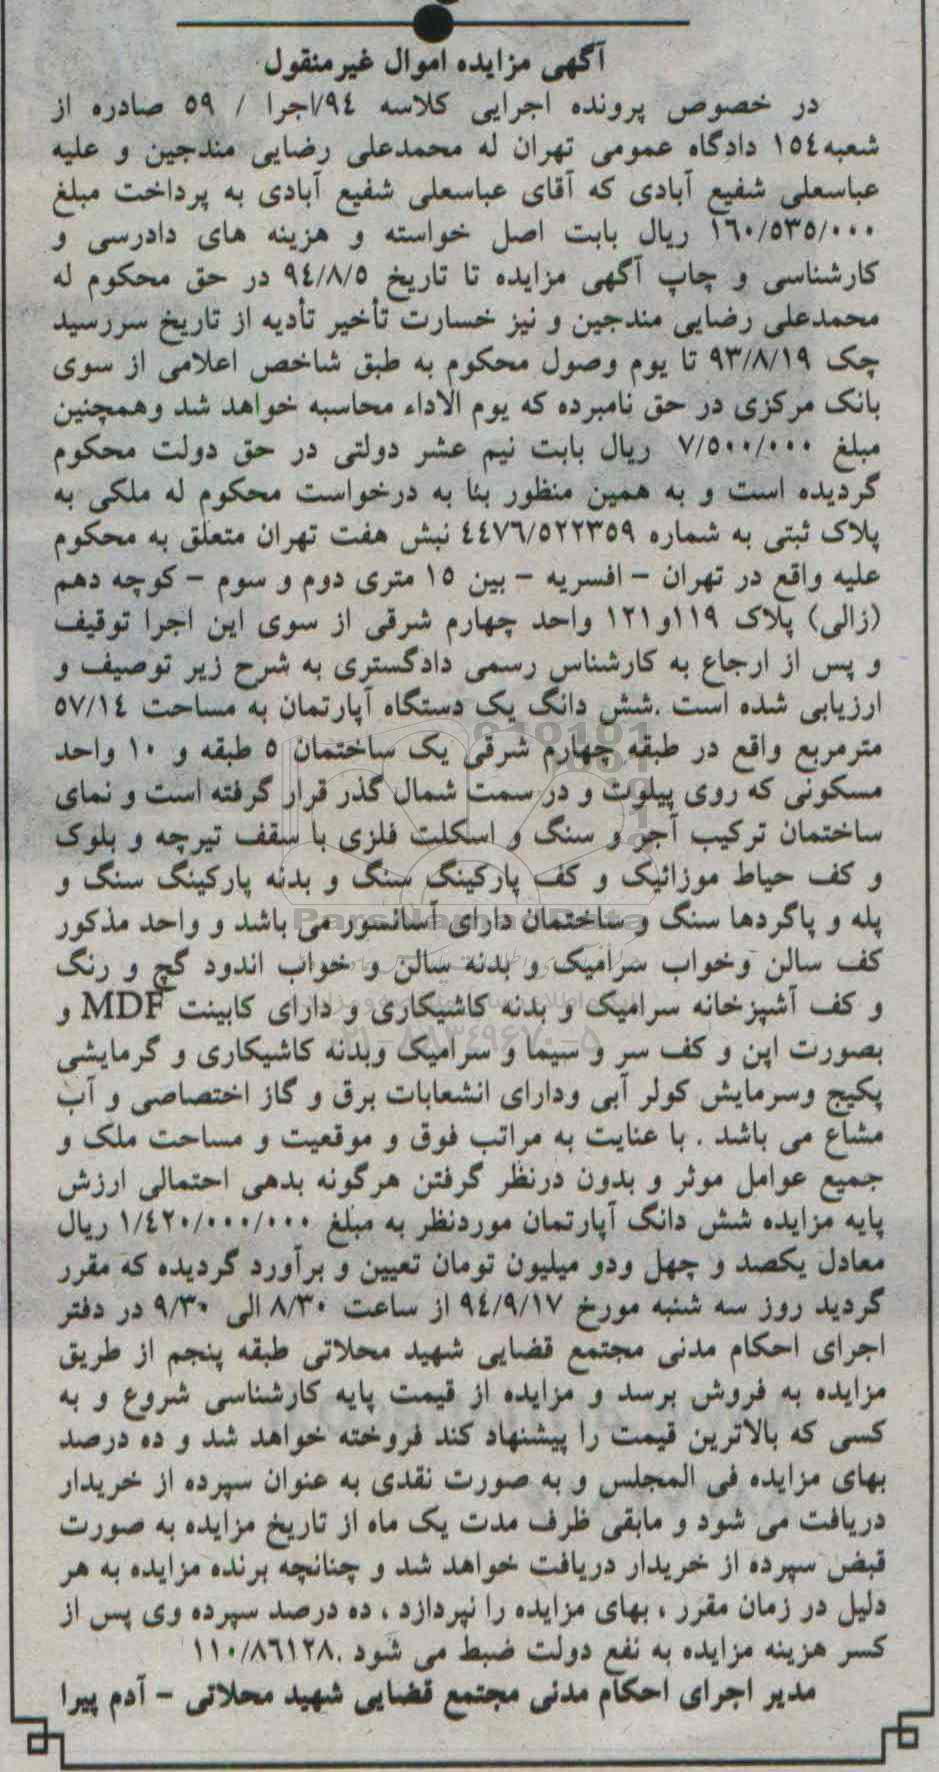 آگهی مزایده اموال غیرمنقول
در خصوص پرونده اجرایی کلاسه ۹۴/اجرا / ۵۹ صادره از
شعبه۱۵۴ دادگاه عمومی تهران له محمدعلی رضایی مندجین و علیه
عباسعلی شفیع آبادی که آقای عباسعلی شفیع آبادی به پرداخت مبلغ
۱۶۰/۵۳۵/۰۰۰ ریال بابت اصل خواسته و هزینه های دادرسی و
کارشناسی و چاپ آگهی مزایده تا تاریخ ۹۴/۸/۵ در حق محکوم له
محمدعلی رضایی مندجین و نیز خسارت تأخیر تأدیه از تاریخ سررسید
چک ۹۳/۸/۱۹ تا یوم وصول محکوم به طبق شاخص اعلامی از سوی
بانک مرکزی در حق نامبرده که یوم الاداء محاسبه خواهد شد وهمچنین
مبلغ ۷/۵۰۰/۰۰۰ ریال بابت نیم عشر دولتی در حق دولت محکوم
گردیده است و به همین منظور بنا به درخواست محکوم له ملکی به
پلاک ثبتی به شماره ۴۴۷۶/۵۲۲۳۵۹ نبش هفت تهران متعلق به محکوم
علیه واقع در تهران - افسریه - بین ۱۵ متری دوم و سوم - کوچه دهم
(زالی) پلاک ۱۱۹و۱۲۱ واحد چهارم شرقی از سوی این اجرا توقیف
و پس از ارجاع به کارشناس رسمی دادگستری به شرح زیر توصیف و
ارزیابی شده است .شش دانگ یک دستگاه آپارتمان به مساحت ۵۷/۱۴
مترمربع واقع در طبقه چهارم شرقی یک ساختمان ۵ طبقه و ۱۰ واحد
مسکونی که روی پیلوت و در سمت شمال گذر قرار گرفته است و نمای
ساختمان ترکیب آجر و سنگ و اسکلت فلزی با سقف تیرچه و بلوک
و کف حیاط موزائیک و کف پارکینگ سنگ و بدنه پارکینگ سنگ و
پله و پاگردها سنگ و ساختمان دارای آسانسور می باشد و واحد مذکور
کف سالن وخواب سرامیک و بدنه سالن و خواب اندود گچ و رنگ
و کف آشپزخانه سرامیک و بدنه کاشیکاری و دارای کابینت MDF و
بصورت اپن و کف سر و سیما و سرامیک وبدنه کاشیکاری و گرمایشی
پکیج وسرمایش کولر آبی ودارای انشعابات برق و گاز اختصاصی و آب
مشاع می باشد . با عنایت به مراتب فوق و موقعیت و مساحت ملک و
جمیع عوامل موثر و بدون درنظر گرفتن هرگونه بدهی احتمالی ارزش
پایه مزایده شش دانگ آپارتمان موردنظر به مبلغ ۱/۴۲۰/۰۰۰/۰۰۰ ریال
معادل یکصد و چهل ودو میلیون تومان تعیین و برآورد گردیده که مقرر
گردید روز سه شنبه مورخ ۹۴/۹/۱۷ از ساعت ۸/۳۰ الی ۹/۳۰ در دفتر
اجرای احکام مدنی مجتمع قضایی شهید محلاتی طبقه پنجم از طریق
مزایده به فروش برسد و مزایده از قیمت پایه کارشناسی شروع و به
کسی که بالاترین قیمت را پیشنهاد کند فروخته خواهد شد و ده درصد
بهای مزایده فی المجلس و به صورت نقدی به عنوان سپرده از خریدار
دریافت می شود و مابقی ظرف مدت یک ماه از تاریخ مزایده به صورت
قبض سپرده از خریدار دریافت خواهد شد و چنانچه برنده مزایده به هر
دلیل در زمان مقرر ، بهای مزایده را نپردازد ، ده درصد سپرده وی پس از
کسر هزینه مزایده به نفع دولت ضبط می شود .۱۱۰/۸۶۱۲۸
مدیر اجرای احکام مدنی مجتمع قضایی شهید محلاتی - آدم پیرا